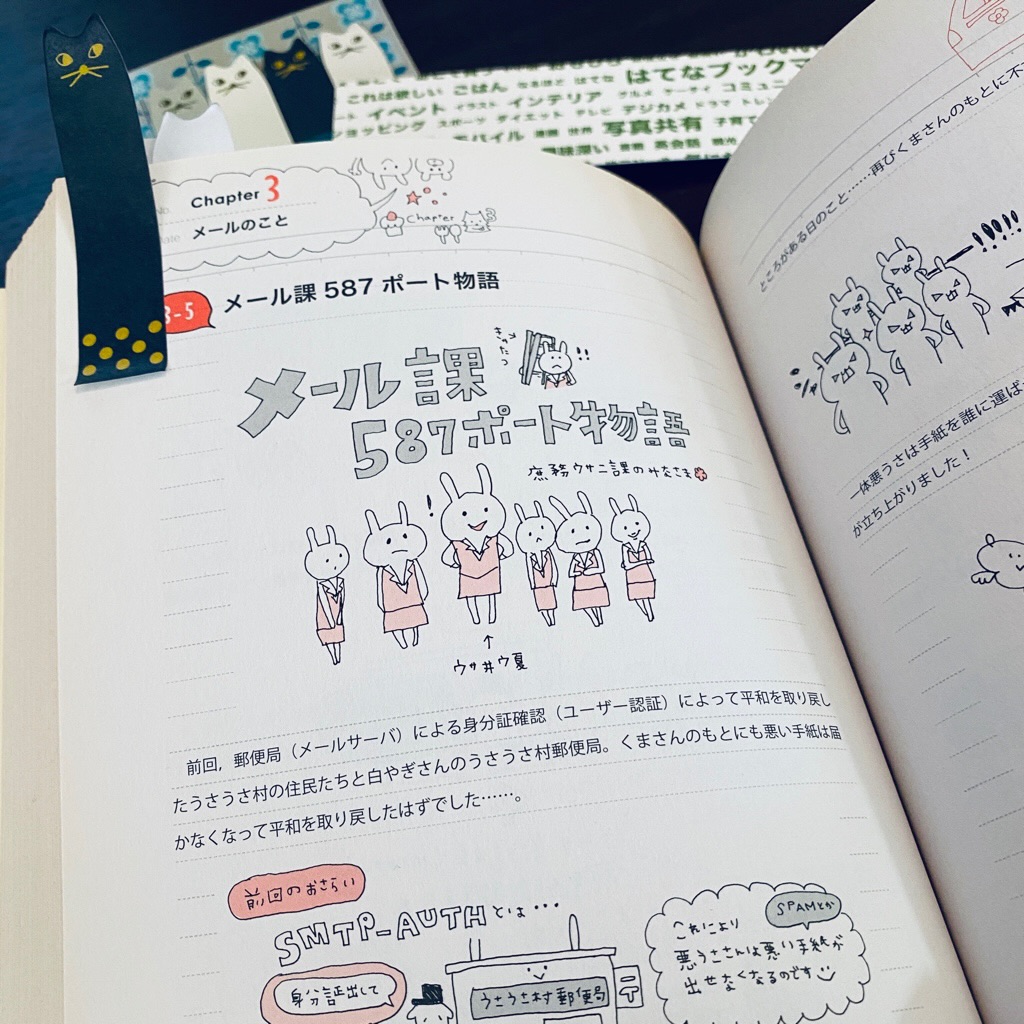 はてなブックマ
これは欲しい ごはん なるほど はてな グルメ ケータイ コミュニ
イベント イラスト インテリア デジカメ ドラマ トレン
ョッピング スポーツ ダイエット テレビ 写真共有 子育て
モバイル 漫画 世界 興味深い 音楽 英会話 観光
No. Chapter 3
Date メールのこと
Chapter 3
3-5 メール課 587 ポート物語
きゃたつ
!!
メール課
587ポート物語
庶務ウサニ課のみなさま
!
↑
ウサ井ウ夏
前回，郵便局（メールサーバ）による身分証確認（ユーザー認証）によって平和を取り戻し
たうさうさ村の住民たちと白やぎさんのうさうさ村郵便局。くまさんのもとにも悪い手紙は届
かなくなって平和を取り戻したはずでした……。
前回のおさらい
SMTP-AUTHとは…
身分証出して
うさうさ村郵便局
〒
SPAMとか
これにより
悪うささんは悪い手紙が
出せなくなるのです
ところがある日のこと……再びくまさんのもとに不
ー!!!!!
一体悪うさは手紙を誰に運ば
が立ち上がりました！